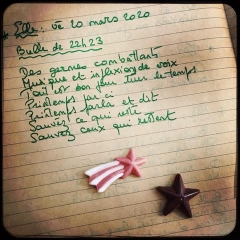 * Elle : ve 20 mars 2020
Bulle de 22h23
Des germes combattants
Musique et inflexion de voix
Tout est bon pour tuer le temps
Printemps par ci
Printemps parla et dit
Sauvez ce qui reste
Sauvez ceux qui restent